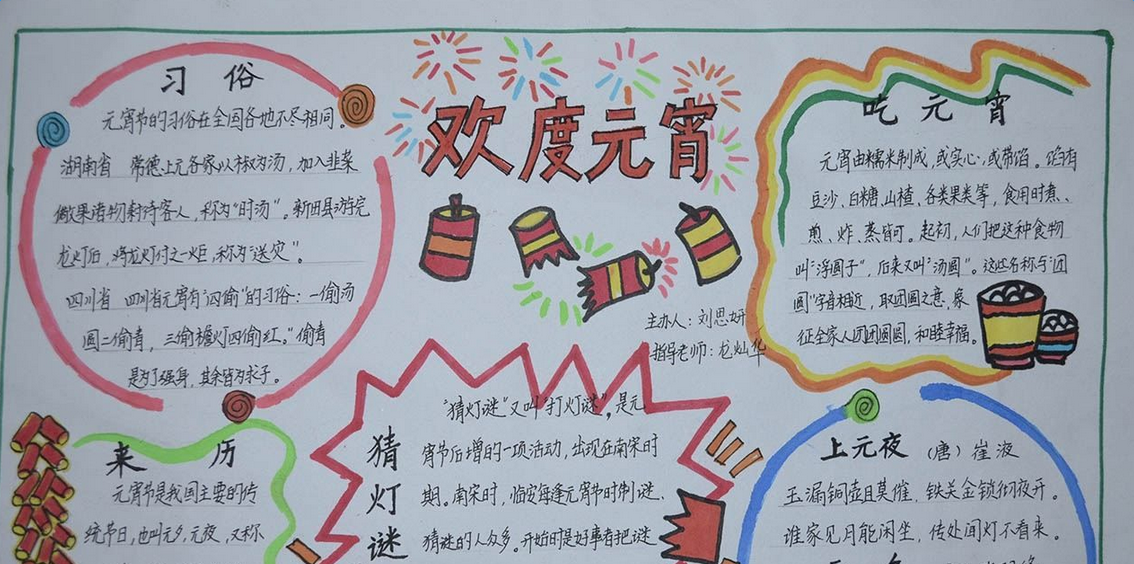 欢度元宵
主办人：刘思妍
指导老师：龙灿华
习俗
元宵节的习俗在全国各地不尽相同。
湖南省 常德上元各家以椒为汤，加入韭菜
做果诸物款待客人，称为“时汤”。新田县游完
龙灯后，将龙灯付之一炬，称为“送灾”。
四川省 四川省元宵有“四偷”的习俗：一偷汤
圆二偷青，三偷檐灯四偷红。”偷青
是为了强身，其余皆为求子。
吃元宵
元宵由糯米制成，或实心，或带馅。馅有
豆沙、白糖、山楂、各类果类等，食用时煮、
煎、炸、蒸皆可。起初，人们把这种食物
叫“浮圆子”，后来又叫“汤圆”。这些名称与“团
圆”字音相近，取团圆之意，象
征全家人团团圆圆，和睦幸福。
来历
元宵节是我国主要的传
统节日，也叫元夕，元夜，又称
猜灯谜
“猜灯谜”又叫“打灯谜”，是元
宵节后增的一项活动，出现在南宋时
期。南宋时，临安每逢元宵节时制谜、
猜谜的人众多。开始时是好事者把谜
上元夜 （唐）崔液
玉漏铜壶且莫催，铁关金锁彻夜开。
谁家见月能闲坐，传处闻灯不看来。